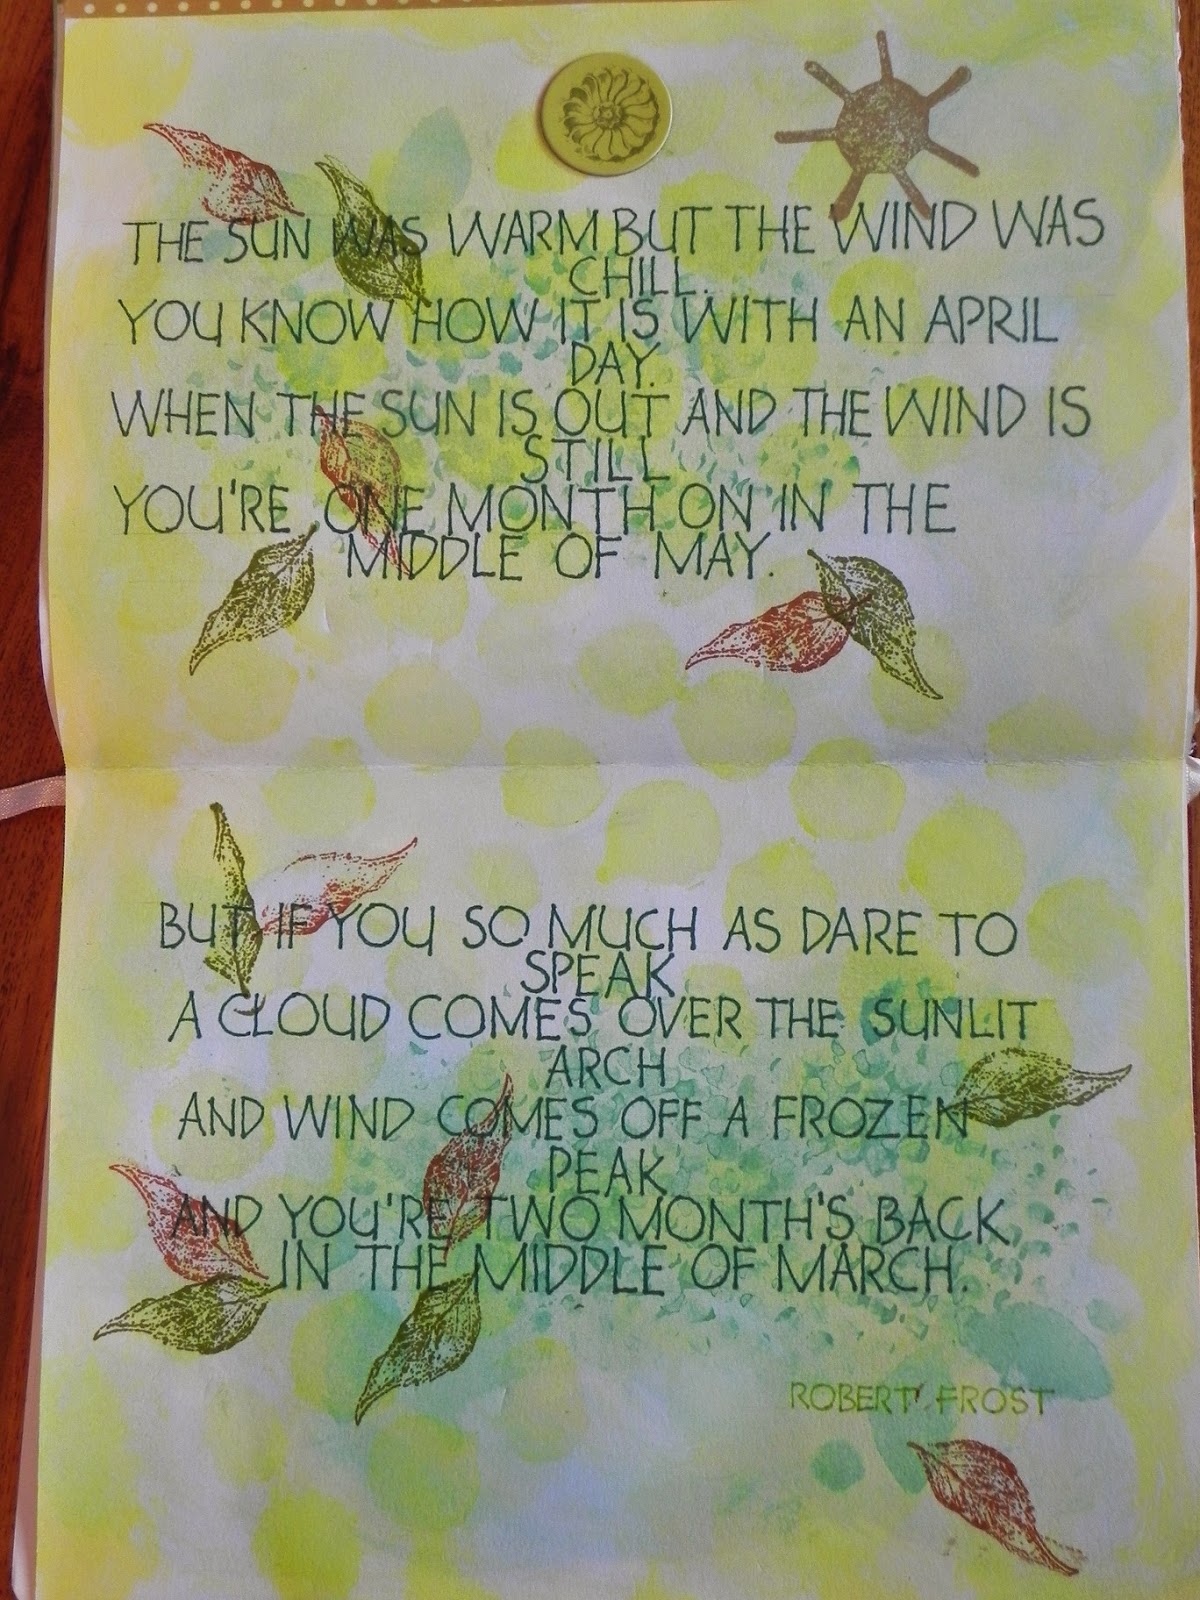 THE SUN WAS WARM BUT THE WIND WAS
CHILL.
YOU KNOW HOW IT IS WITH AN APRIL
DAY.
WHEN THE SUN IS OUT AND THE WIND IS
STILL
YOU'RE ONE MONTH ON IN THE
MIDDLE OF MAY.
BUT IF YOU SO MUCH AS DARE TO
SPEAK
A CLOUD COMES OVER THE SUNLIT
ARCH
AND WIND COMES OFF A FROZEN
PEAK
AND YOU'RE TWO MONTH'S BACK
IN THE MIDDLE OF MARCH.
ROBERT FROST